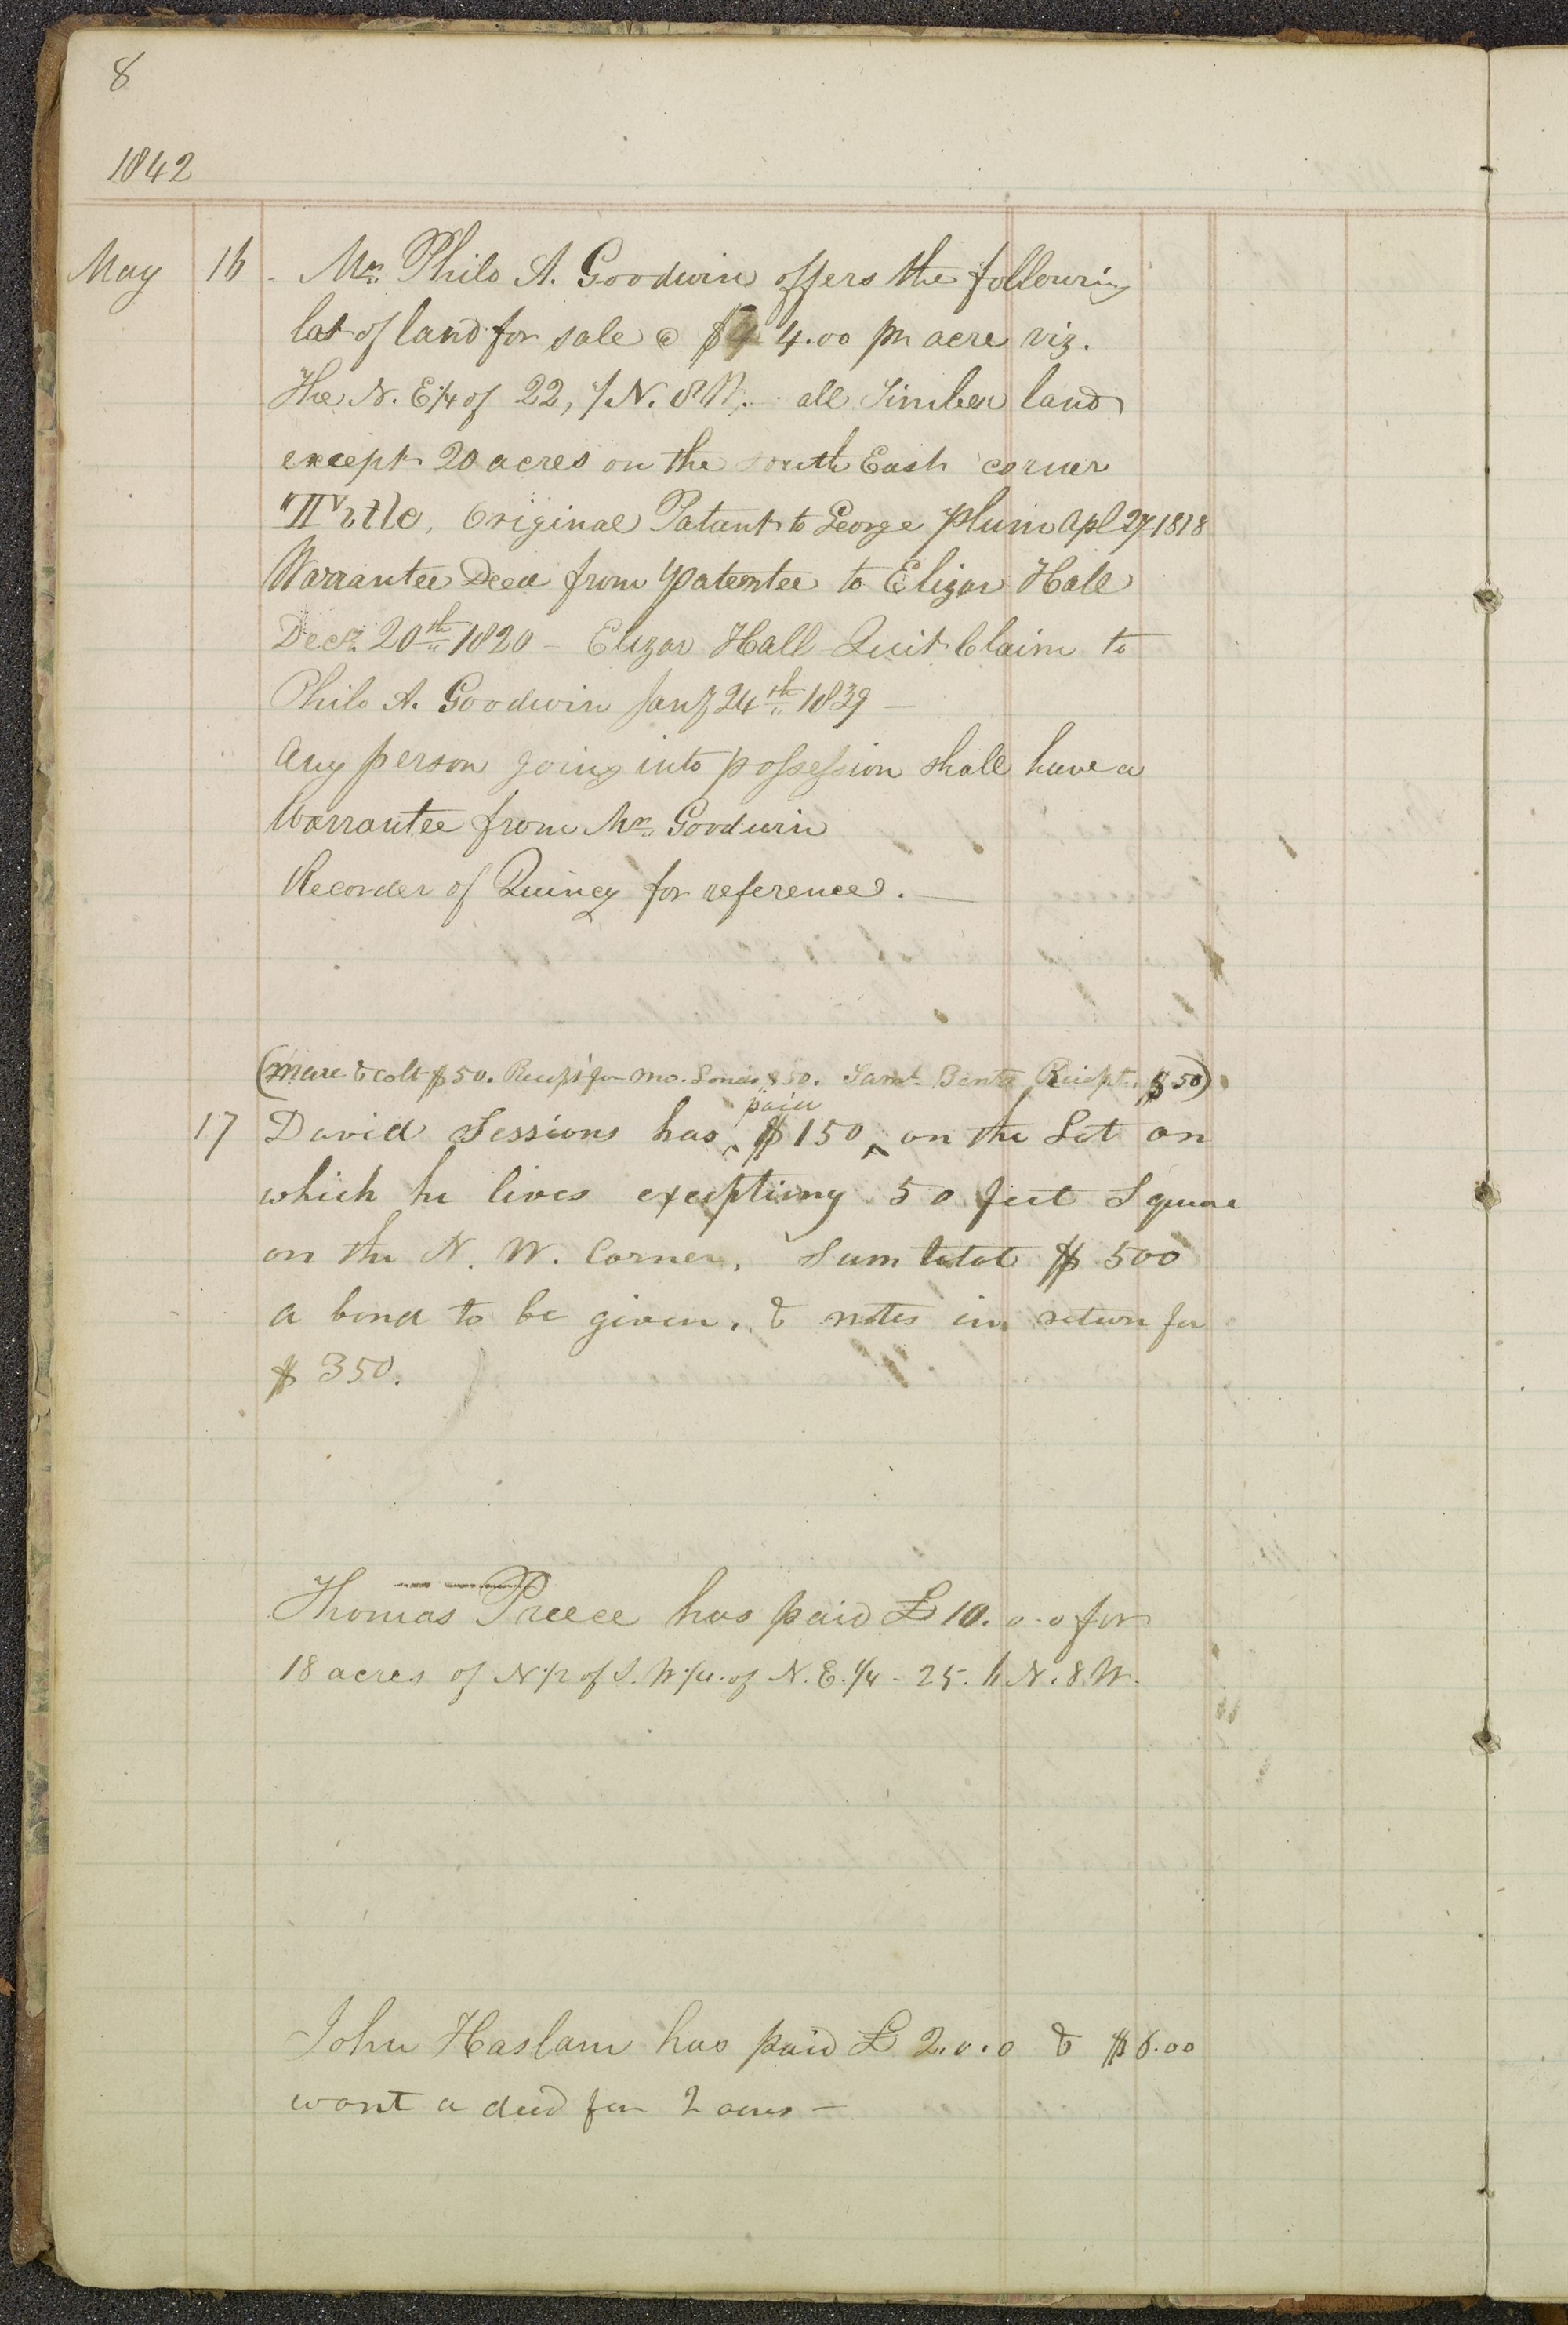 8
1842
May 16 Mr. Philo A. Goodwin offers the following
lot of land for sale @ $4.00 pr acre viz.
The N. E 1/4 of 22, 7 N. 8 W. all Timber land
except 20 acres on the South East corner
Title, Original Patant to George Plum Apl 27 1818
Warrantee Deed from Patentee to Elizar Hall
Decr. 20th 1820 – Elizar Hall Quit Claim to
Philo A. Goodwin Jany 24th 1839 –
Any person going into possession shall have a
Warrantee from Mr. Goodwin
Recorder of Quincy for reference. —
(Mare & colt $50. Recipt for $50. Saml. Bents Reicpt. $50)
paid
17 David Sessions has ^ $150 ^ on the Lot on
which he lives exceptiing 50 feet Square
on the N. W. Corner, Sum total $500
a bond to be given. & notes in return for
$350.
Thomas Preece has paid £10.0.0 for
18 acres of N 1/2 of S. W 1/4. of N. E. 1/4 - 25. 6 N. 8. W.
John Haslam has paid £2.0.0 & $6.00
want a deed for 2 acres –